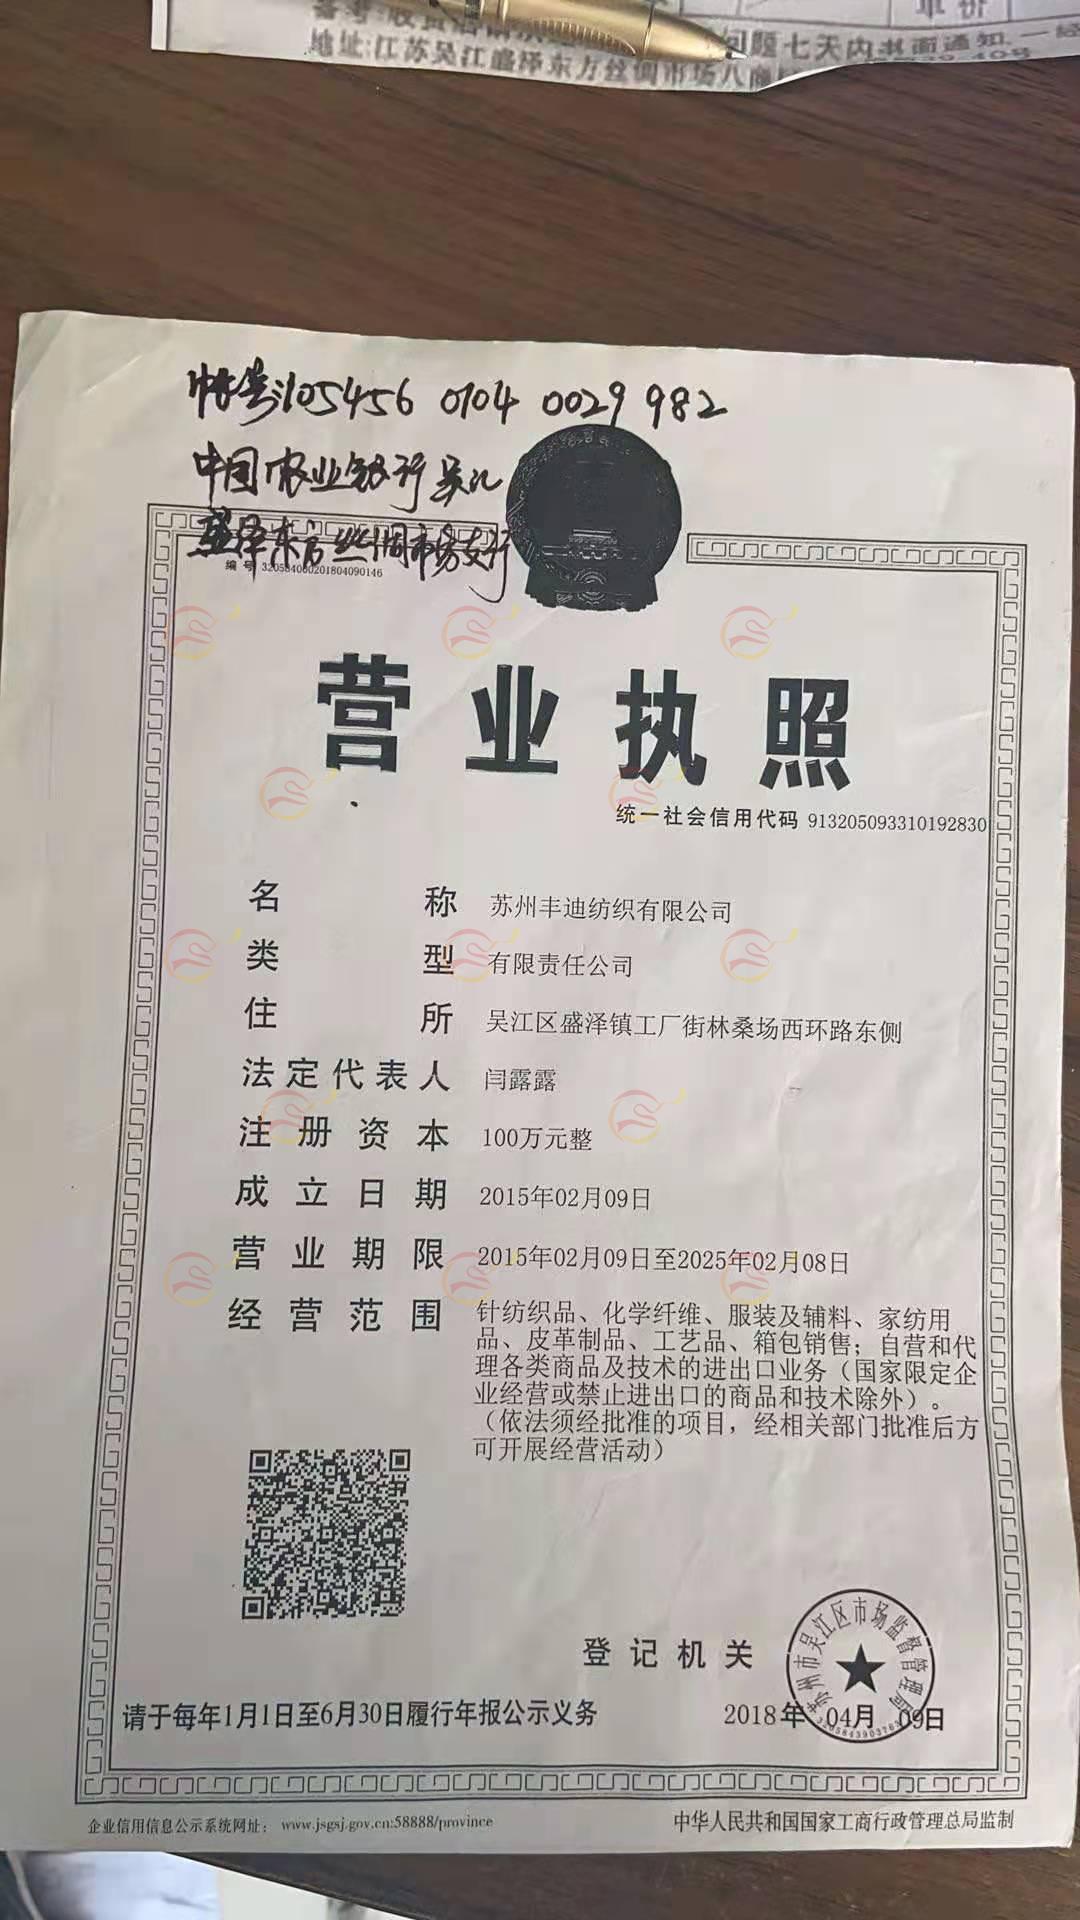 问题七天内书面通知,一经
地址:江苏吴江盛泽东方丝绸市场八商
帐号:105456 0704 0029 982
中国农业银行吴江
盛泽东方丝绸市场支行
编 号 320584000201804090146
营业执照
统一社会信用代码 913205093310192830
名称 苏州丰迪纺织有限公司
类型 有限责任公司
住所 吴江区盛泽镇工厂街林桑场西环路东侧
法定代表人 闫露露
注册资本 100万元整
成立日期 2015年02月09日
营业期限 2015年02月09日至2025年02月08日
经营范围 针纺织品、化学纤维、服装及辅料、家纺用
品、皮革制品、工艺品、箱包销售；自营和代
理各类商品及技术的进出口业务（国家限定企
业经营或禁止进出口的商品和技术除外）。
（依法须经批准的项目，经相关部门批准后方
可开展经营活动）
登记机关
苏州市吴江区市场监督管理局
请于每年1月1日至6月30日履行年报公示义务
2018年 04月 09日
企业信用信息公示系统网址： www.jsgsj.gov.cn:58888/province
中华人民共和国国家工商行政管理总局监制